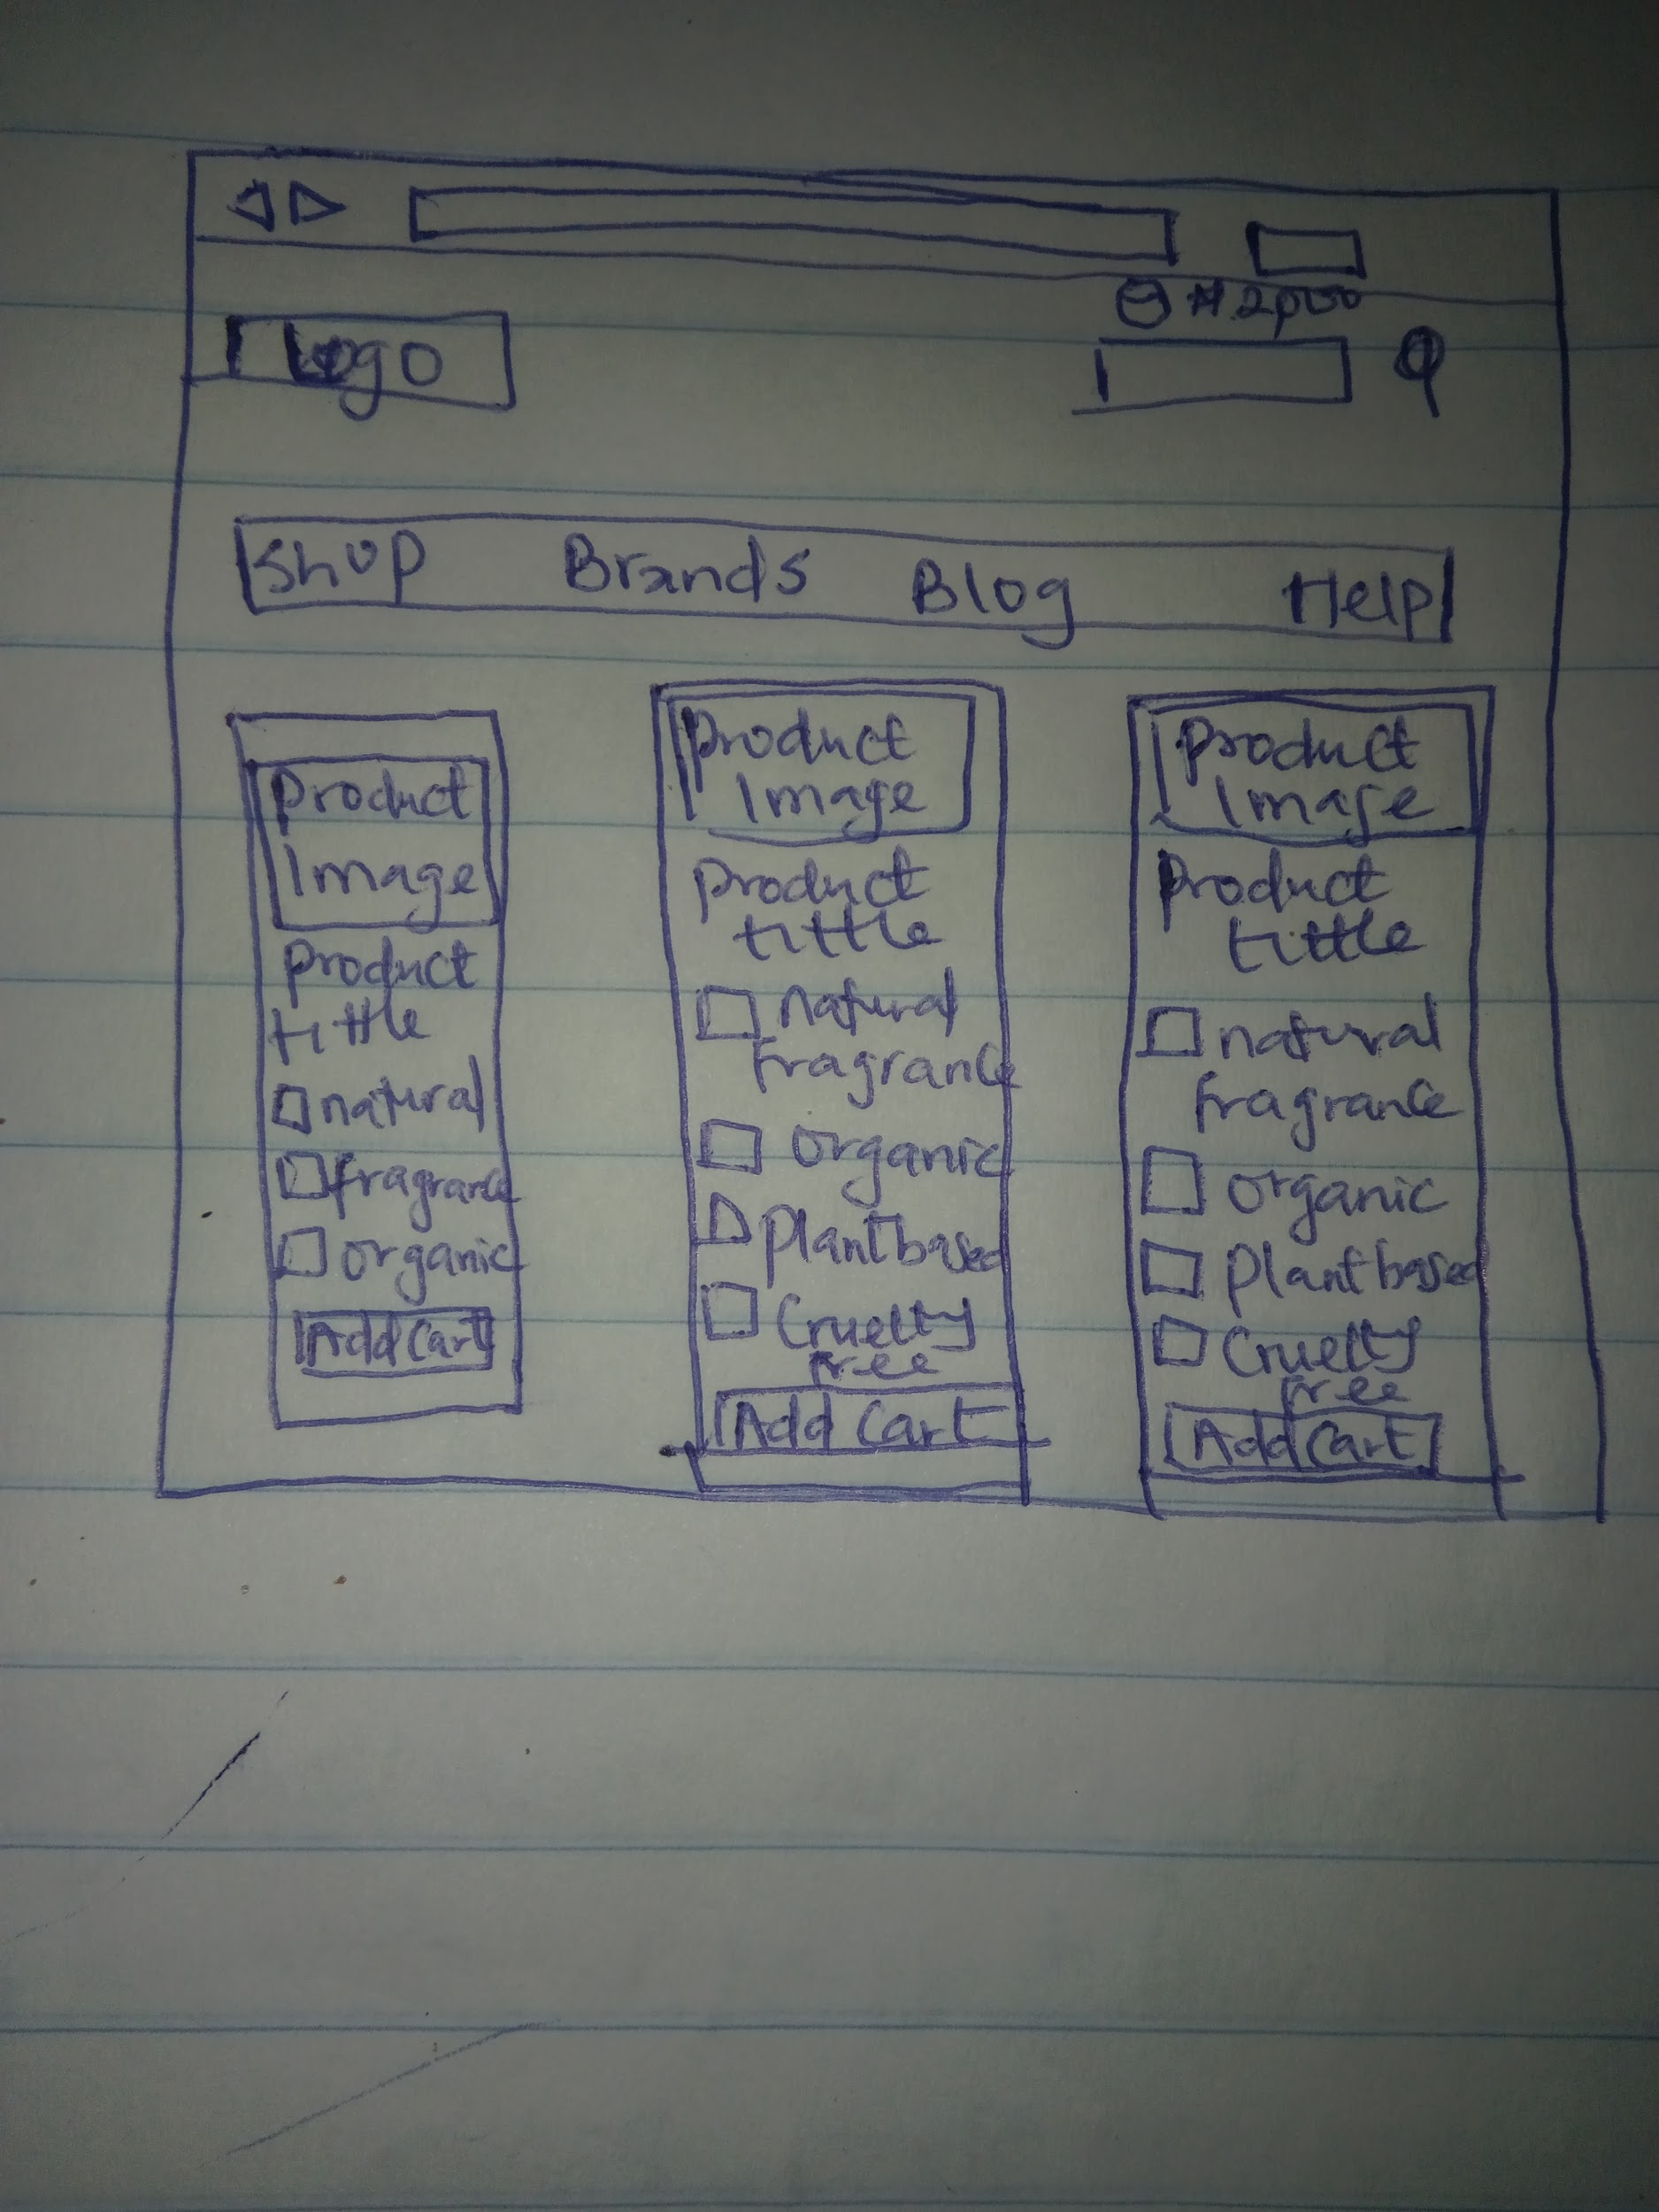 Logo
Shop Brands Blog Help
Product
Image
Product
tittle
natural
fragrance
organic
Add Cart
Product
Image
Product
tittle
natural
fragrance
organic
Plant based
Cruelty
free
Add Cart
Product
Image
Product
tittle
natural
fragrance
organic
Plant based
Cruelty
free
Add Cart